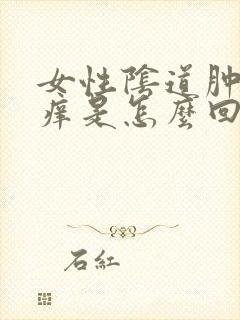 女性陰道肿
痒是怎麼回
石紅